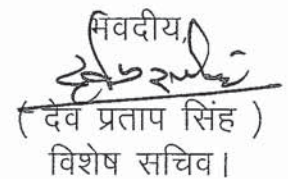 भवदीय,
( देव प्रताप सिंह )
विशेष सचिव।